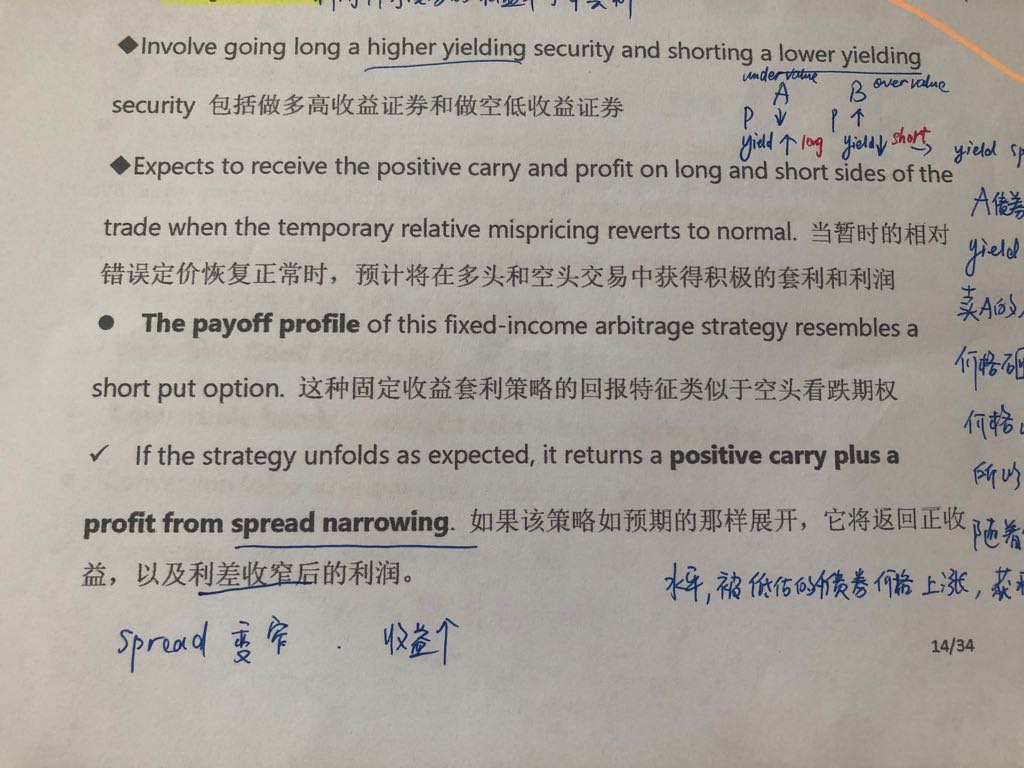 ◆Involve going long a higher yielding security and shorting a lower yielding
under value
A
B
over value
security 包括做多高收益证券和做空低收益证券
P ↓
P ↑
yield ↑ long
yield ↓ short → yield
◆Expects to receive the positive carry and profit on long and short sides of the
A债券
trade when the temporary relative mispricing reverts to normal. 当暂时的相对
yield
错误定价恢复正常时，预计将在多头和空头交易中获得积极的套利和利润
卖A的人
● The payoff profile of this fixed-income arbitrage strategy resembles a
价格
short put option. 这种固定收益套利策略的回报特征类似于空头看跌期权
价格
✓ If the strategy unfolds as expected, it returns a positive carry plus a
所以
profit from spread narrowing. 如果该策略如预期的那样展开，它将返回正收
随着
益，以及利差收窄后的利润。
水平，被低估的债券价格上涨，获
spread 变窄 . 收益↑
14/34